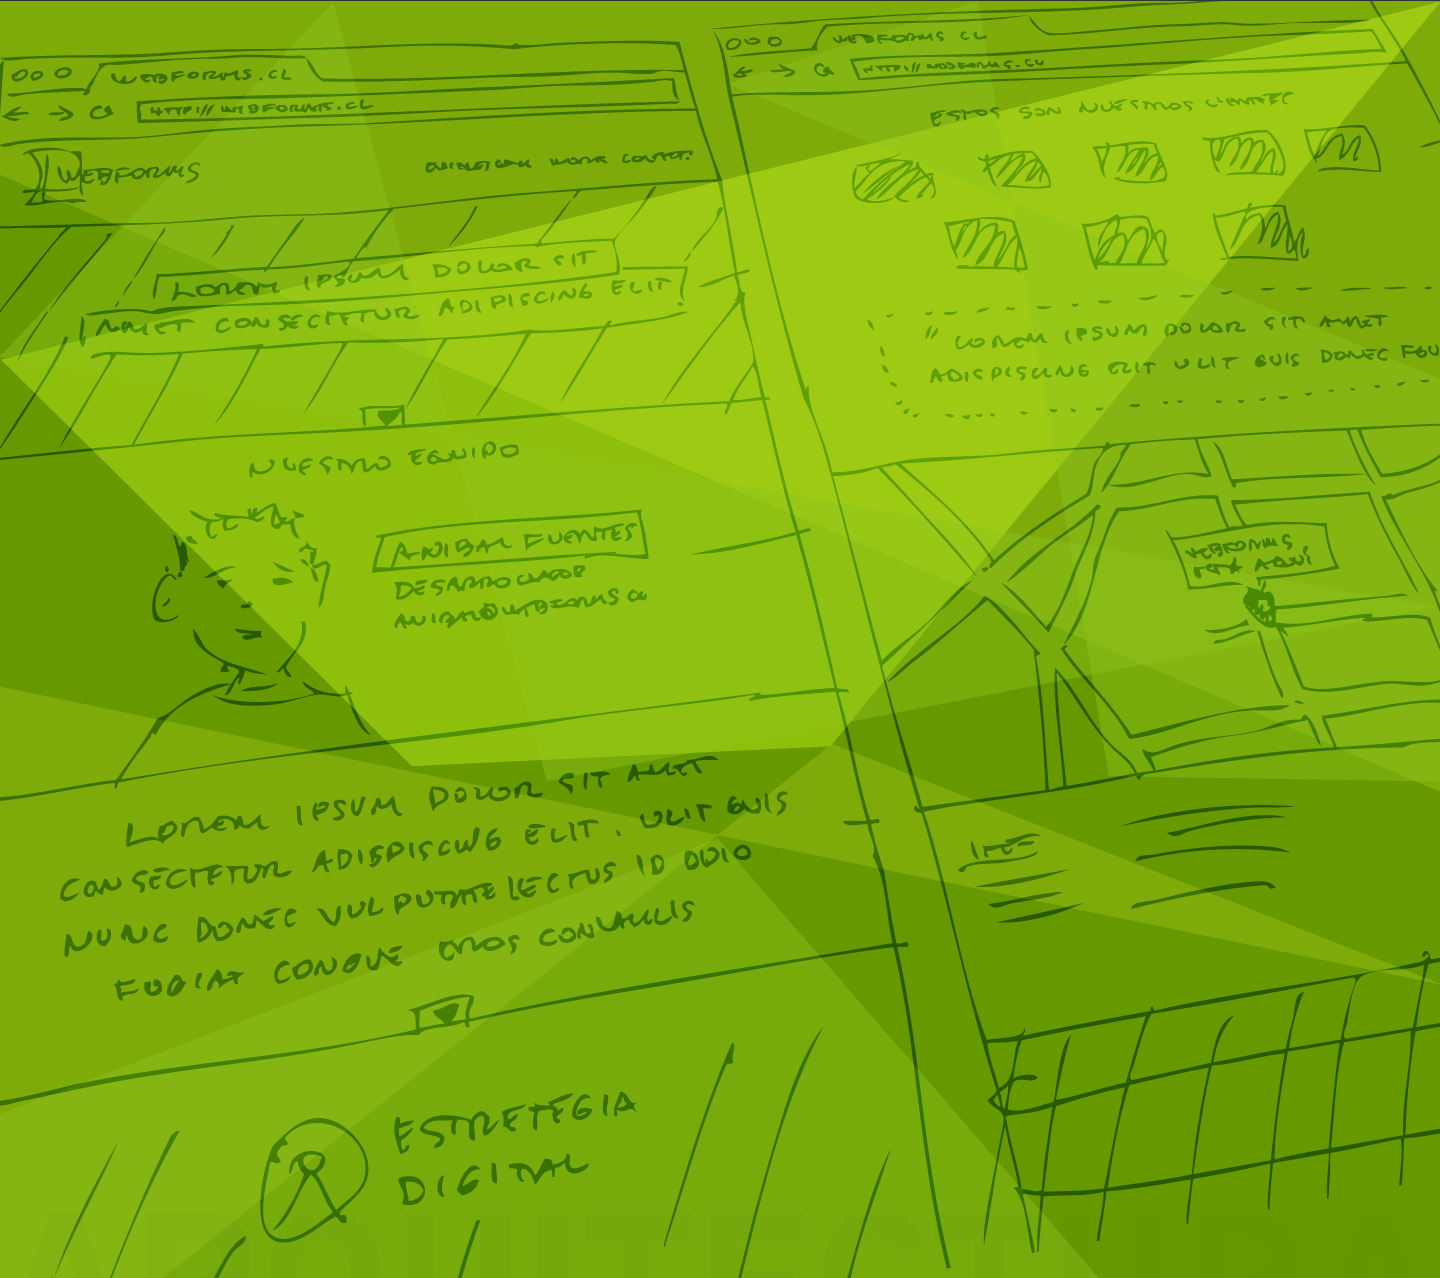 WEBFORMS.CL
HTTP:// WEBFORMS.CL
WEBFORMS
WORK CONTACT
LOREM IPSUM DOLOR SIT
AMET CONSECTETUR ADIPISCING ELIT
NUESTRO EQUIPO
ANIBAL FUENTES
DESARROLLADOR
ANIBAL@WEBFORMS.CL
LOREM IPSUM DOLOR SIT AMET
CONSECTETUR ADISPISCING ELIT. ULIT QUIS
NUNC DONEC VULPUTATE LECTUS ID ODIO
FUGIAT CONGUE EROS CONVALLIS
ESTRETEGIA
DIGITAL
WEBFORMS CL
HTTP:// WEBFORMS.CL
ESTOS SON NUESTROS CLIENTES
" LOREM IPSUM DOLOR SIT AMET
ADISPISCING ELIT ULIT QUIS DONEC FGU
WEBFORMS
ESTA AQUÍ
ARQUITECTURA